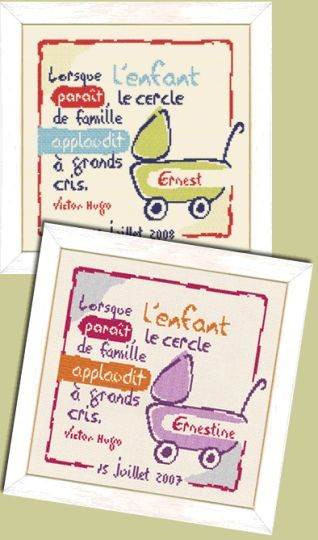 Lorsque l'enfant
paraît, le cercle
de famille
applaudit
à grands
cris.
Victor Hugo
Ernest
juillet 2008
Lorsque l'enfant
paraît, le cercle
de famille
applaudit
à grands
cris.
Victor Hugo
Ernestine
15 juillet 2007